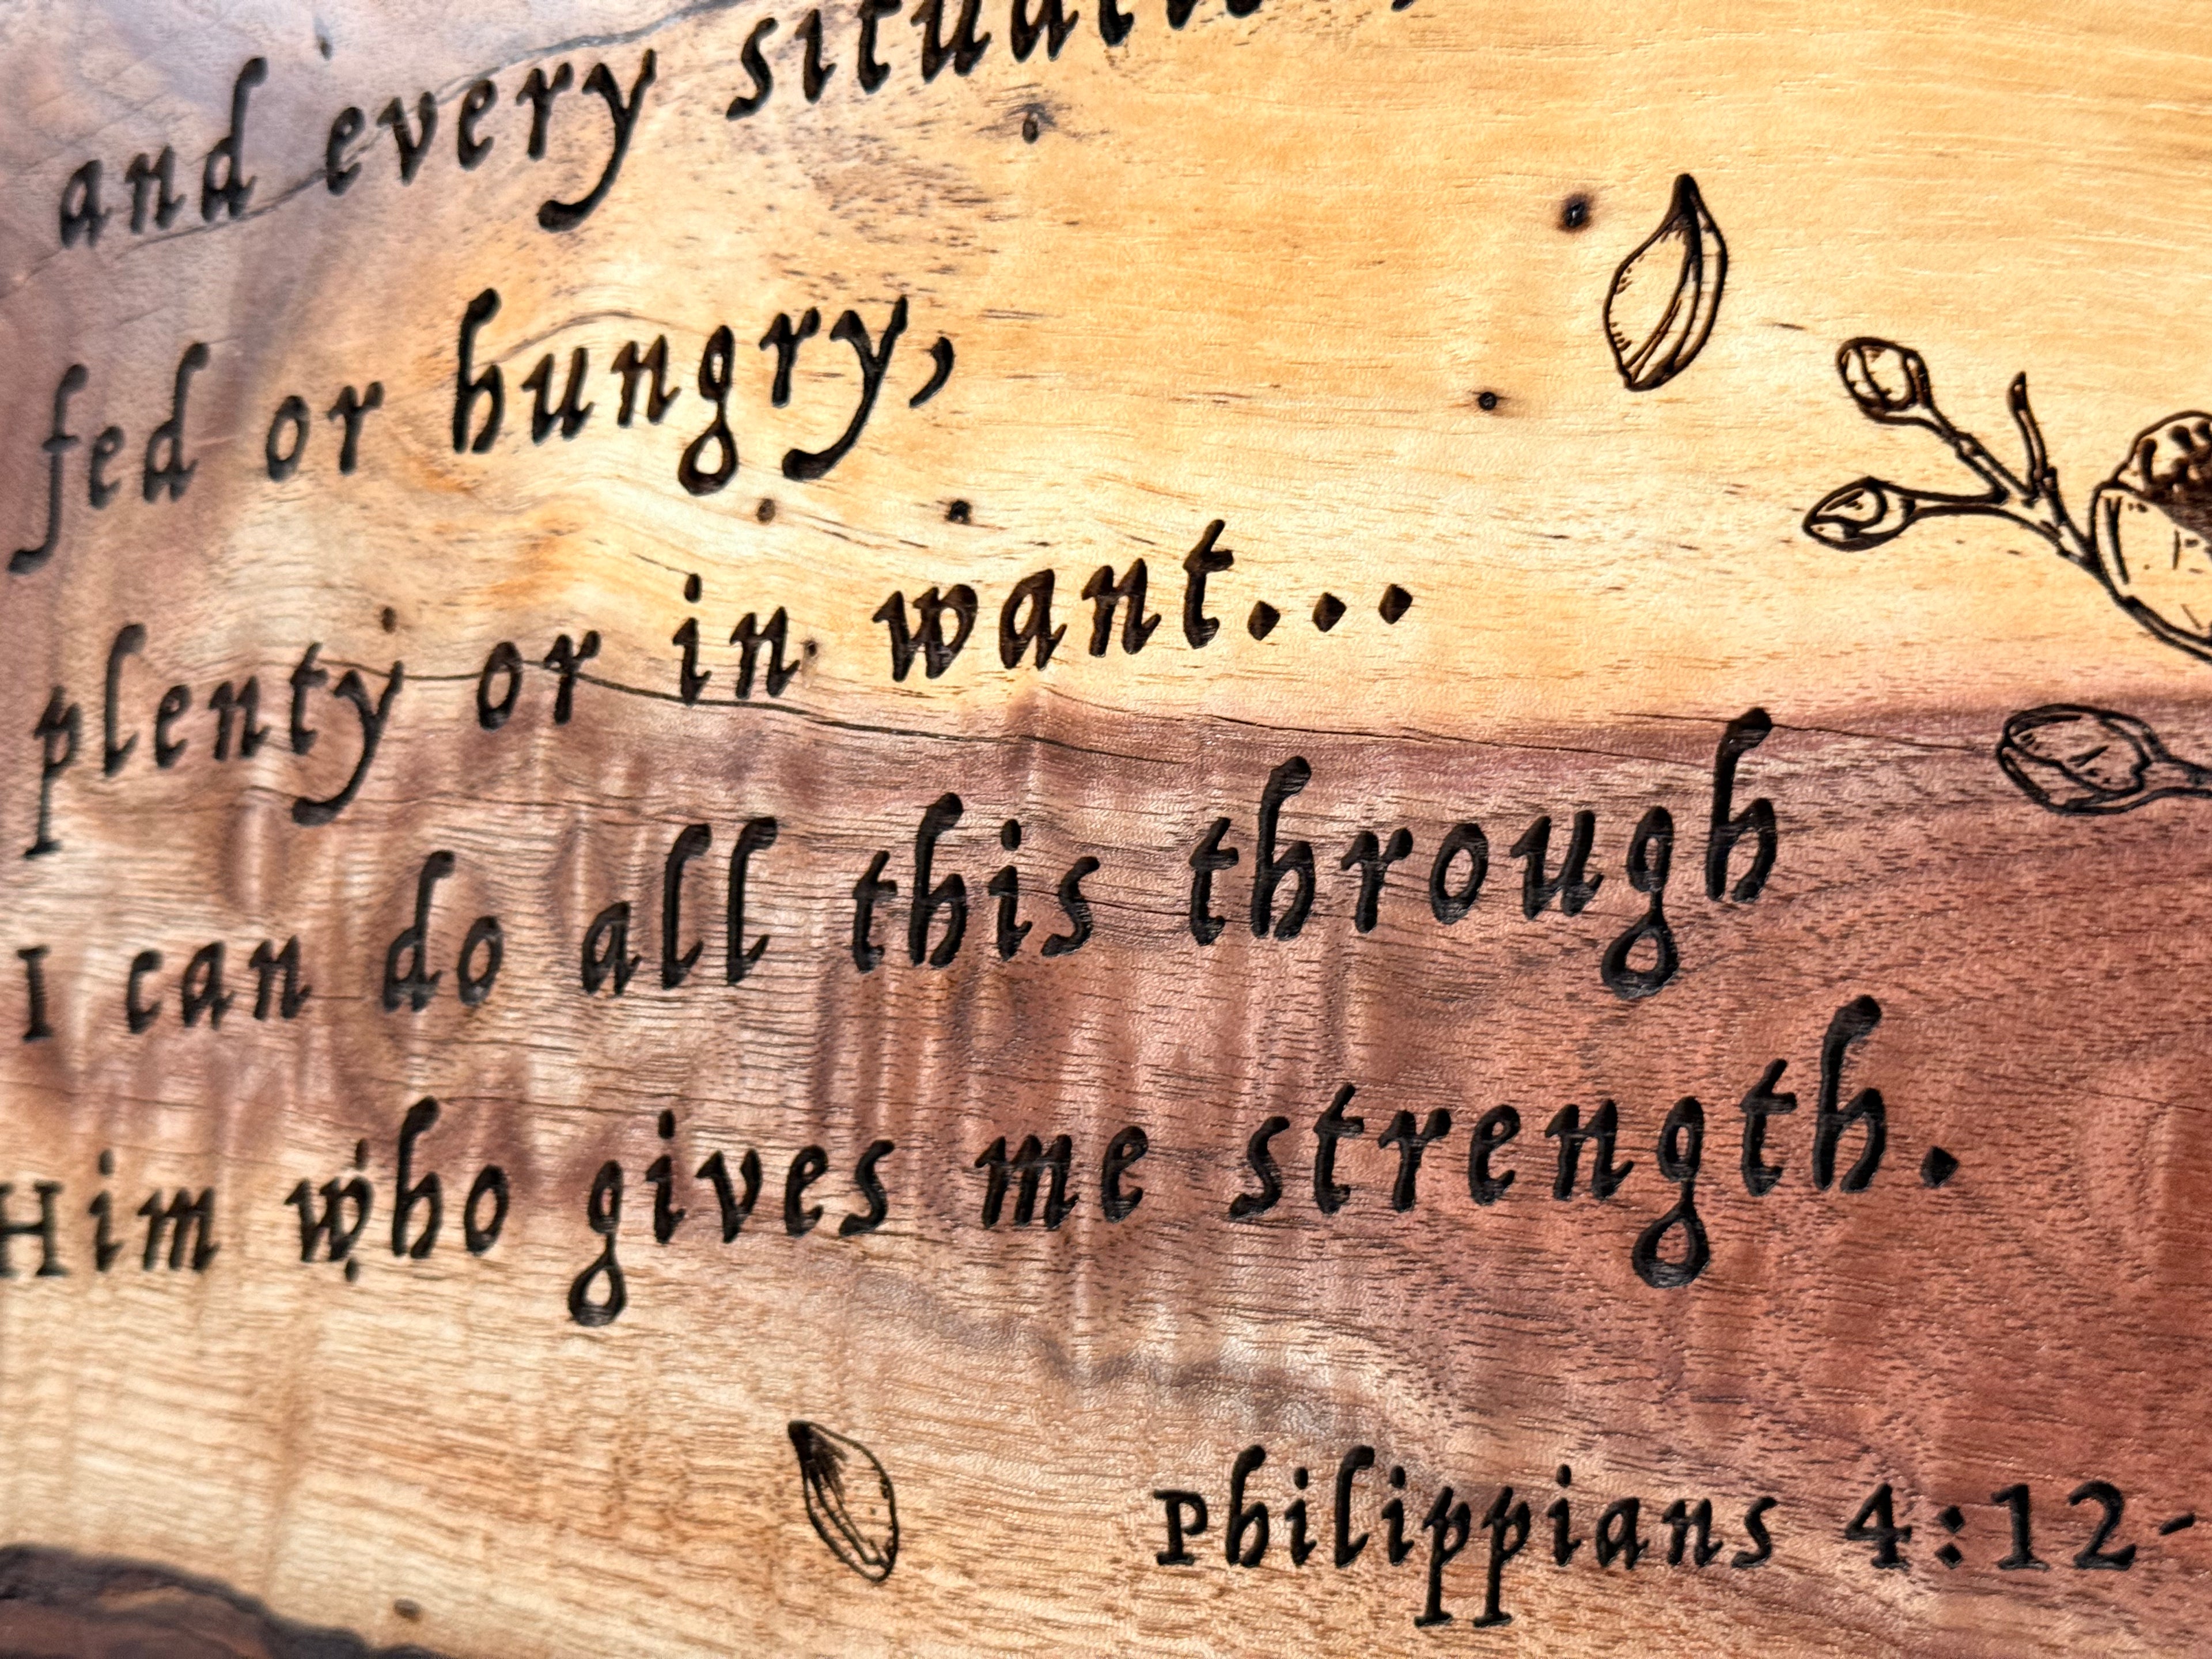 and every situation,
fed or hungry,
plenty or in want...
I can do all this through
Him who gives me strength.
Philippians 4:12-